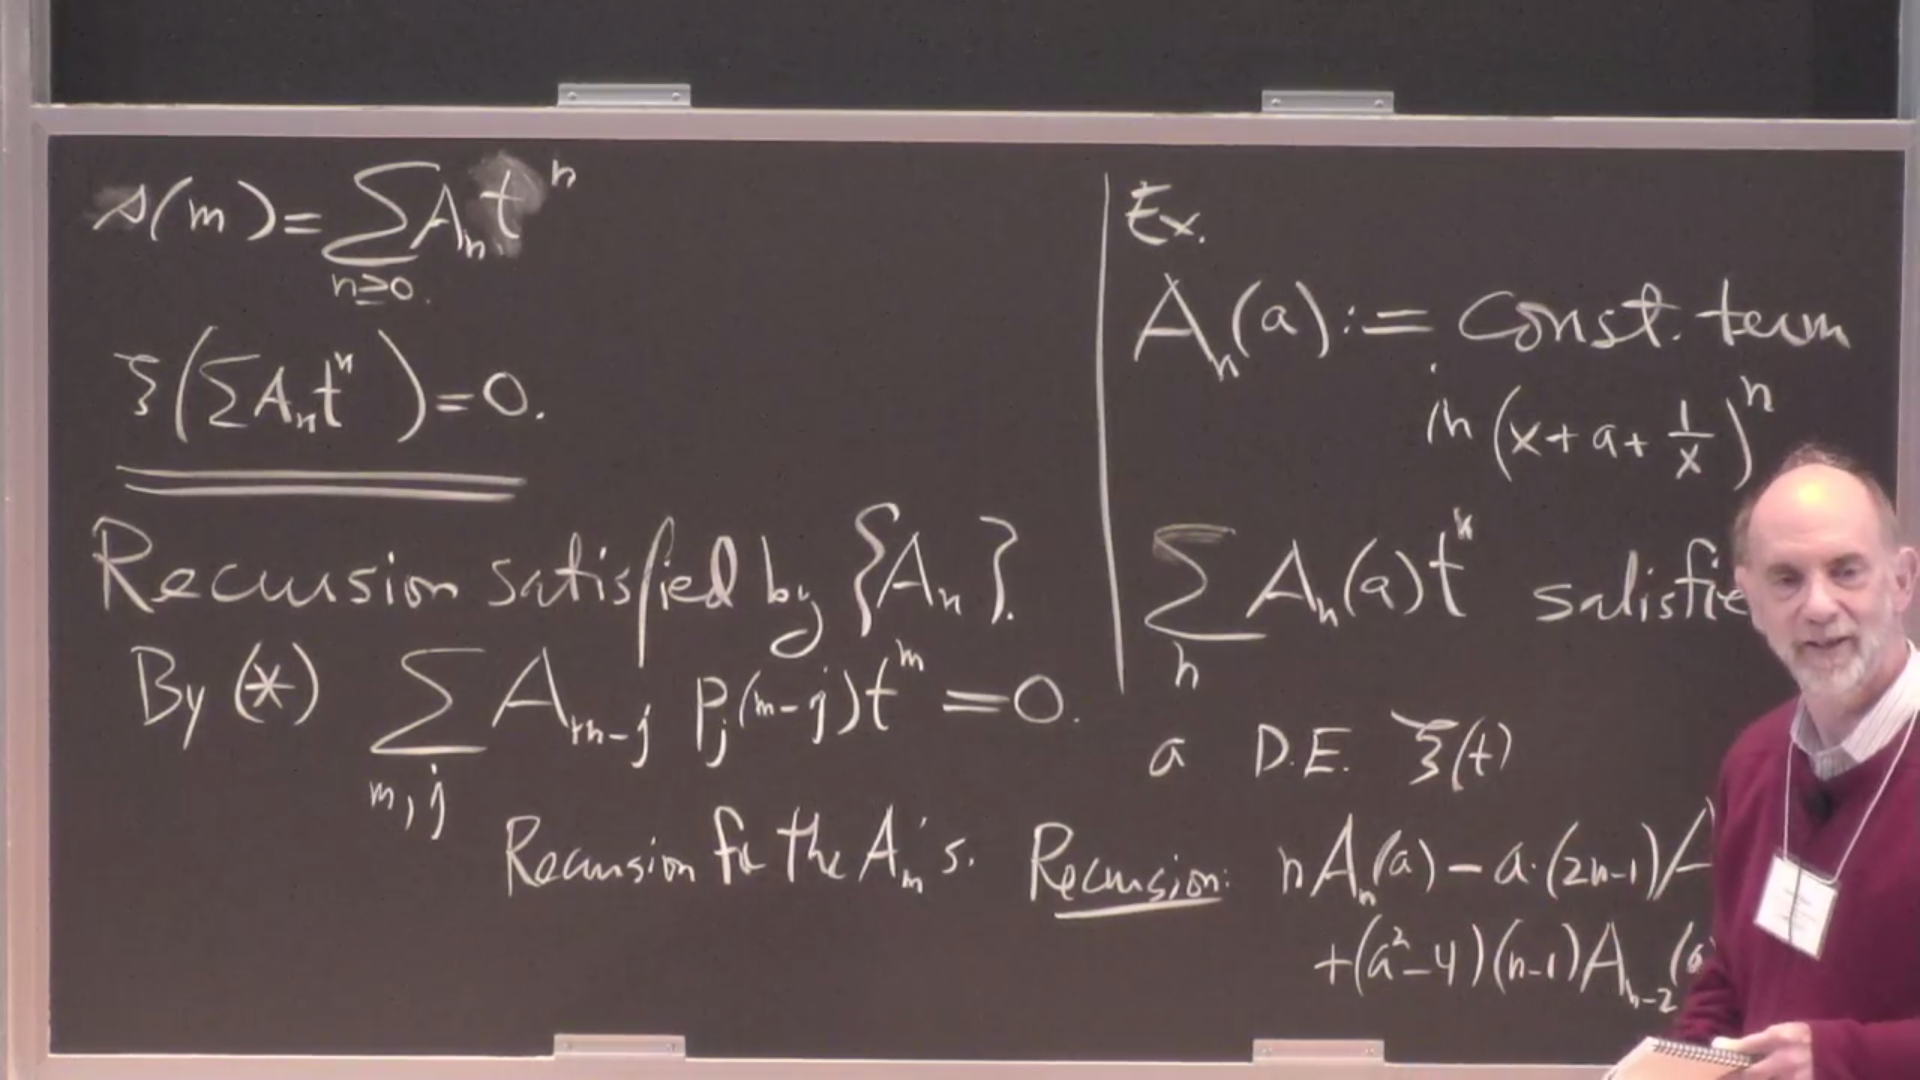 s(m) = ∑_{n≥0} A_n t^n
ξ(∑ A_n t^n) = 0.
Recursion satisfied by {A_n}.
By (*) ∑_{m,j} A_{m-j} p_j(m-j) t^m = 0.
Recursion for the A_m's.
Ex.
A_n(a) := Const. term
in (x + a + 1/x)^n
∑_n A_n(a) t^n satisfie
a D.E. ξ(t)
Recursion: n A_n(a) - a·(2n-1) A
+ (a^2 - 4)(n-1) A_{n-2} (a